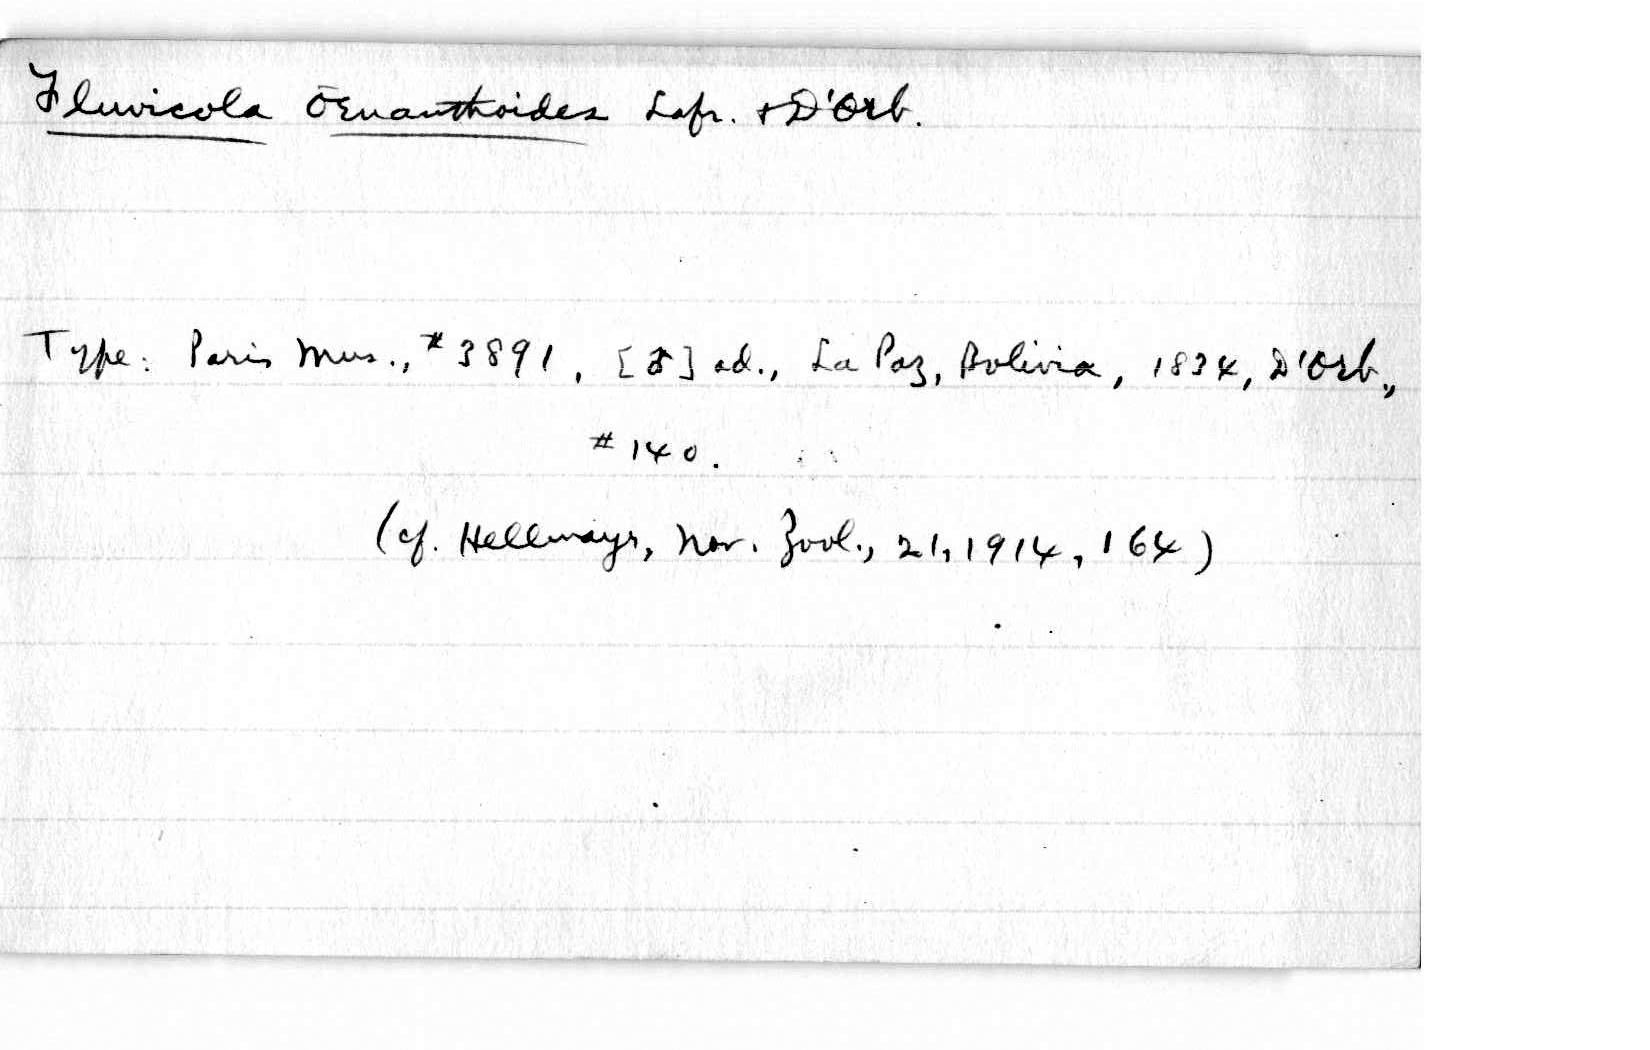 Fluvicola Oenanthoides Lafr. + D'Orb.
Type: Paris Mus., #3891, [♂] ad., La Paz, Bolivia, 1834, D'Orb.,
#140.
(cf. Hellmayr, Nov. Zool., 21, 1914, 164)